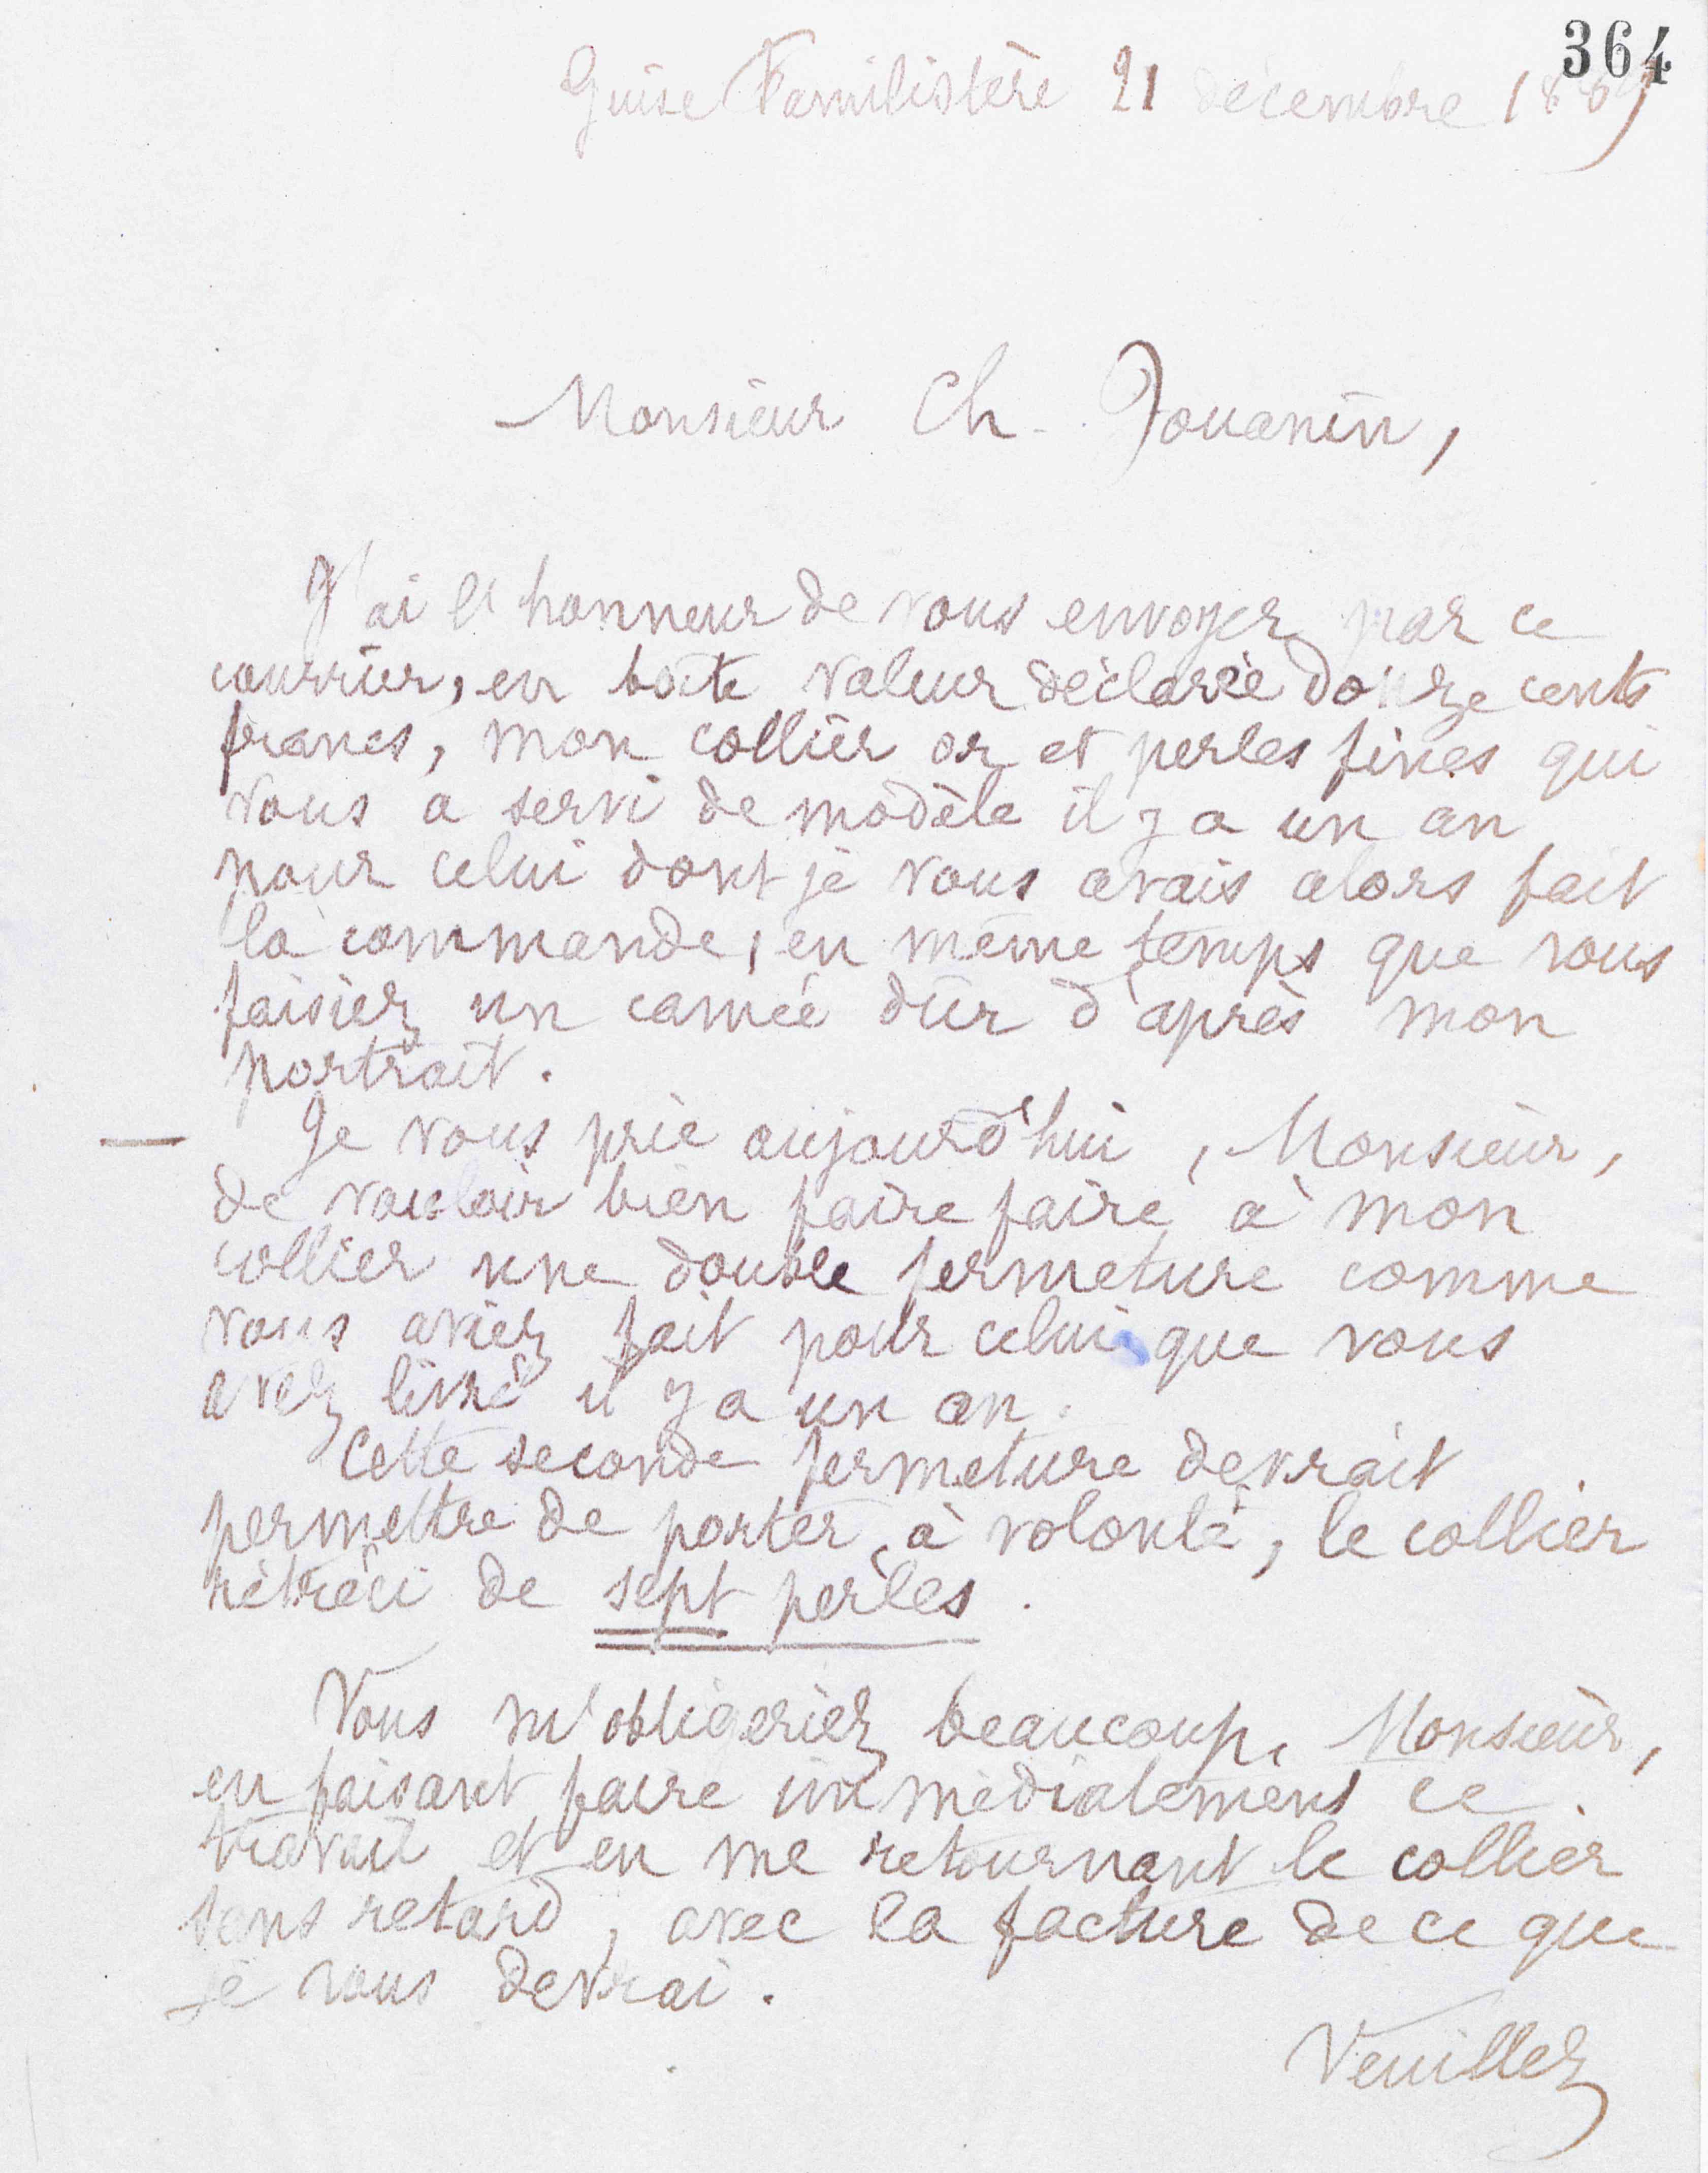 364
Guise Familistère 21 décembre 1889
Monsieur Ch. Jouanin,
J'ai l'honneur de vous envoyer par ce
courrier, en boîte valeur déclarée douze cents
francs, mon collier or et perles fines qui
vous a servi de modèle il y a un an
pour celui dont je vous avais alors fait
la commande, en même temps que vous
faisiez un camée dur d'après mon
portrait.
— Je vous prie aujourd'hui, Monsieur,
de vouloir bien faire faire à mon
collier une double fermeture comme
vous aviez fait pour celui que vous
avez livré il y a un an.
Cette seconde fermeture devrait
permettre de porter, à volonté, le collier
rétréci de sept perles.
Vous m'obligeriez beaucoup, Monsieur,
en faisant faire immédiatement ce
travail et en me retournant le collier
sans retard, avec la facture de ce que
je vous devrai.
Veuillez